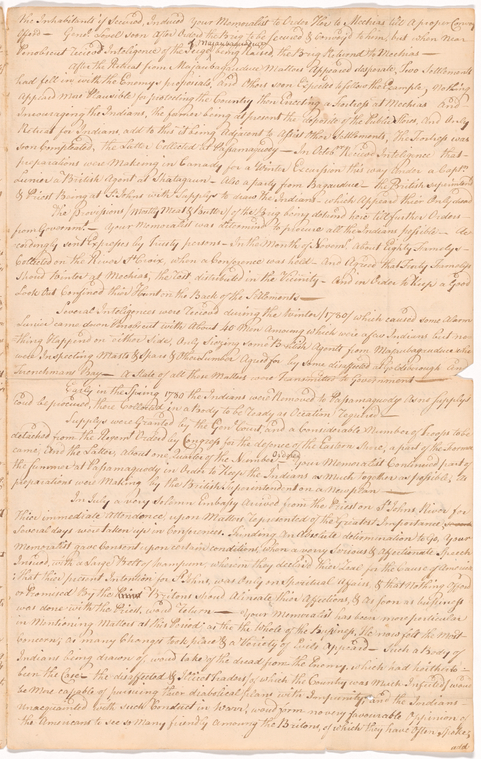 the Inhabitants if Secured, Induced Your Memorialist to Order Her to Mechias till a proper Convoy
Offerd — Genl Lovel soon After Orders the Brig to be Secured & Convoy'd to him, but when near
Penobscot Received Intelligence of the Siege being Raised the Brig Returnd to Mechias —
Majorbagaduce
After the Retreat from Majorbagaduce Matters Appeared desperate, Two Settlements
had fell in with the Enemys proposals, and Others soon Expected to follow the Example, Nothing
Appeard More Plausible for protecting the Country then Errecting a Fortress at Mechias And
Incouraging the Indians, the former being at present the deposite of the Publick Stores, And Only
Retreat for Indians add to this it being Adjacent to Assist other Settlements, The Fortress was
soon Compleated, the Latter Collected at Passamaquody — In Octobr Receivd Intelligence that
preparations were Making in Canada for a Winter Excursion this way Under a Captn
Lunier a British Agent at — Also a party from Bagaduce — the British
& Priest Being at St Johns with Supplys to draw the Indians — which Appeard their Only
The Provisions, Mostly Meat & Butter of the Brig being detaind here till further Orders
from Goverment — Your Memorialist was determined to procure all the Indians possible — Ac
cordingly sent Expresses by Trusty persons — In the Month of about Eighty Familys
Collected on the River St Croix, when a Conference was held — And Agreed that Forty Familys
Shoud Winter at Mechias, the Rest distributed in the Vicinity — And in Order to Keep a Good
Look Out Confined their Hunt on the Back of the Settlements —
Several Intelligences were Receivd during the Winter (1780) which caused some Alarm
Lunier came down Penobscot with About 40 Men Amoung which were a few Indians but no
thing Happend on either side, Only Siezing some British Agents from Majorbagaduce who
were Inspecting Masts & Spars & Other Lumber Agreed for by some disaffected at Goldsborough And
Frenchmans Bay — A State of all these Matters were Transmitted to Goverment —
Early in the Spring 1780 the Indians were Removed to Passamaquody as no supplys
coud be procured, there Collected in a body to be Ready as Occation Required —
Supplys were Granted by the Genl Court and a Considerable Number of Troops to be
detached from the Ordered by Congress for the defence of the Eastern Shore, a part of the former
came, And the Latter, about one Quarter of the Number Orderd — Your Memorialist Continued part of
the Summer at Passamaquody in Order to Keep the Indians as Much together as possible, as
preparations were Making by the British Representent on a new plan —
In July a very Solemn Embassy Arrived from the Priest on St Johns River for
their immediate Attendence, upon Matters Represented of the Greatest Importance
Several days were taken up in Conferences, & determination to Go, Your
Memorialist gave Consent upon certain conditions, when a very Serious & Affectionate Speech
Insued, with a Large Belt of Wampum, wherein they declared their Zeal for the Cause of America
that their present Intention for St Johns, was Only on Spiritual Affairs, & that Nothing Offerd
or Promised By the Britons shoud Alienate their Affections, & as soon as business
was done with the Priest, woud Return — Your Memorialist has been more particular
in Mentioning Matters at this Period, as tis the whole of the Business, He now felt the Most
Concern, as many Changes took place & a Variety of Ends Appeard — Such a Body of
Indians being drawn of, woud take of the dread from the Enemy, which had hitherto
been the Case — the disaffected & Traders of which the Country was Much Infested, woud
be More capable of pursuing their diabolical plans with Impunity, and the Indians
Unacquainted with such Conduct in Warr, woud form no very favourable Oppinion of
the Americans to see so Many friendly Amoung the Britons, of which they have Often Spoke,
and